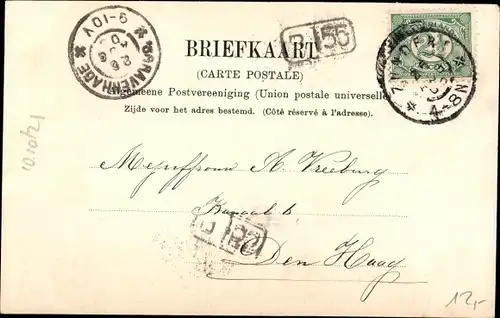 BRIEFKAART
(CARTE POSTALE)
Algemeene Postvereeniging (Union postale universelle)
Zijde voor het adres bestemd. (Côté réservé à l'adresse).
'SGRAVENHAGE
9-10 V
Mejuffrouw A. Vreeburg
Kanaal 6
Den Haag
12,-